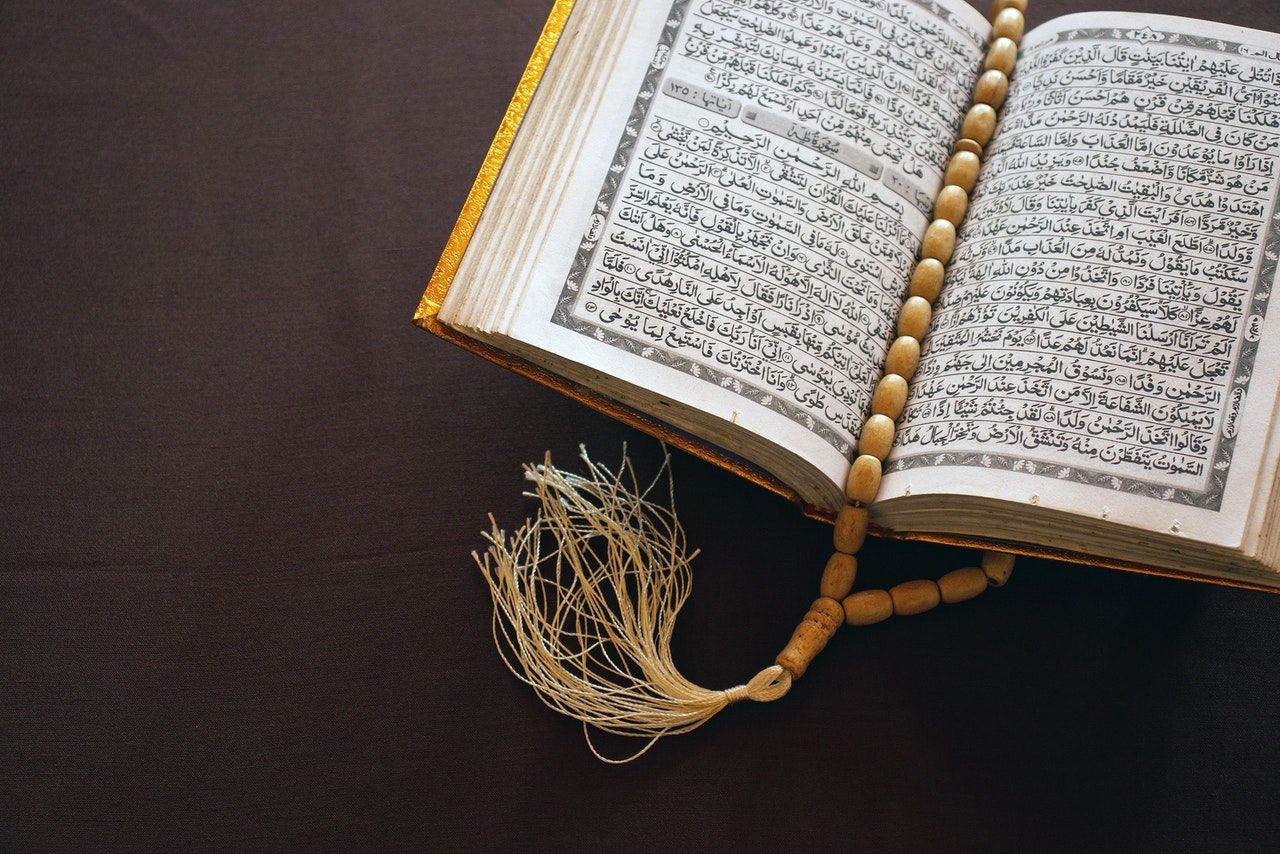 ذَا تُتْلٰى عَلَيْهِمْ اٰيٰتُنَا بَيِّنٰتٍ قَالَ الَّذِيْنَ كَفَرُوْا
اَيُّ الْفَرِيْقَيْنِ خَيْرٌ مَّقَامًا وَّاَحْسَنُ نَدِيًّا
اَهْلَكْنَا قَبْلَهُمْ مِّنْ قَرْنٍ هُمْ اَحْسَنُ اَثَاثًا
مَنْ كَانَ فِى الضَّلٰلَةِ فَلْيَمْدُدْ لَهُ الرَّحْمٰنُ مَدًّا
اِذَا رَاَوْا مَا يُوْعَدُوْنَ اِمَّا الْعَذَابَ وَاِمَّا
مَنْ هُوَ شَرٌّ مَّكَانًا وَّاَضْعَفُ جُنْدًا وَيَزِيْدُ اللّٰهُ
اهْتَدَوْا هُدًى وَالْبٰقِيٰتُ الصّٰلِحٰتُ خَيْرٌ عِنْدَ رَبِّكَ
وَّخَيْرٌ مَّرَدًّا اَفَرَءَيْتَ الَّذِيْ كَفَرَ بِاٰيٰتِنَا وَقَالَ لَاُوْتَيَنَّ
وَلَدًا اَطَّلَعَ الْغَيْبَ اَمِ اتَّخَذَ عِنْدَ الرَّحْمٰنِ عَهْدًا
سَنَكْتُبُ مَا يَقُوْلُ وَنَمُدُّ لَهٗ مِنَ الْعَذَابِ مَدًّا
يَقُوْلُ وَيَاْتِيْنَا فَرْدًا وَاتَّخَذُوْا مِنْ دُوْنِ اللّٰهِ اٰلِهَةً
لَهُمْ عِزًّا كَلَّا سَيَكْفُرُوْنَ بِعِبَادَتِهِمْ وَيَكُوْنُوْنَ عَلَيْهِمْ
اَلَمْ تَرَ اَنَّا اَرْسَلْنَا الشَّيٰطِيْنَ عَلَى الْكٰفِرِيْنَ تَؤُزُّهُمْ اَزًّا
تَعْجَلْ عَلَيْهِمْ اِنَّمَا نَعُدُّ لَهُمْ عَدًّا يَوْمَ نَحْشُرُ الْمُتَّقِيْنَ
الرَّحْمٰنِ وَفْدًا وَنَسُوْقُ الْمُجْرِمِيْنَ اِلٰى جَهَنَّمَ وِرْدًا
لَا يَمْلِكُوْنَ الشَّفَاعَةَ اِلَّا مَنِ اتَّخَذَ عِنْدَ الرَّحْمٰنِ عَهْدًا
وَقَالُوا اتَّخَذَ الرَّحْمٰنُ وَلَدًا لَقَدْ جِئْتُمْ شَيْئًا اِدًّا تَكَادُ
السَّمٰوٰتُ يَتَفَطَّرْنَ مِنْهُ وَتَنْشَقُّ الْاَرْضُ وَتَخِرُّ الْجِبَالُ هَدًّا
وَلَدًا
كُلُّ مَنْ فِى السَّمٰوٰتِ وَالْاَرْضِ
لَقَدْ اَحْصٰىهُمْ وَعَدَّهُمْ عَدًّا
اِنَّ الَّذِيْنَ اٰمَنُوْا وَعَمِلُوا الصّٰلِحٰتِ سَيَجْعَلُ
فَاِنَّمَا يَسَّرْنٰهُ بِلِسَانِكَ لِتُبَشِّرَ بِهِ
وَتُنْذِرَ بِهٖ قَوْمًا لُّدًّا وَكَمْ اَهْلَكْنَا قَبْلَهُمْ مِّنْ قَرْنٍ
هَلْ تُحِسُّ مِنْهُمْ مِّنْ اَحَدٍ اَوْ تَسْمَعُ لَهُمْ رِكْزًا
سُوْرَةُ طٰهٰ اٰيَاتُهَا : ١٣٥
بِسْمِ اللّٰهِ الرَّحْمٰنِ الرَّحِيْمِ
مَا اَنْزَلْنَا عَلَيْكَ الْقُرْاٰنَ لِتَشْقٰى اِلَّا تَذْكِرَةً لِّمَنْ يَّخْشٰى
مِّمَّنْ خَلَقَ الْاَرْضَ وَالسَّمٰوٰتِ الْعُلٰى اَلرَّحْمٰنُ عَلَى
اسْتَوٰى لَهٗ مَا فِى السَّمٰوٰتِ وَمَا فِى الْاَرْضِ وَمَا
وَمَا تَحْتَ الثَّرٰى وَاِنْ تَجْهَرْ بِالْقَوْلِ فَاِنَّهٗ يَعْلَمُ السِّرَّ
اَللّٰهُ لَا اِلٰهَ اِلَّا هُوَ لَهُ الْاَسْمَاءُ الْحُسْنٰى وَهَلْ اَتٰىكَ
مُوْسٰى اِذْ رَاٰ نَارًا فَقَالَ لِاَهْلِهِ امْكُثُوْا اِنِّيْ اٰنَسْتُ
اٰتِيْكُمْ مِّنْهَا بِقَبَسٍ اَوْ اَجِدُ عَلَى النَّارِ هُدًى فَلَمَّا
نُوْدِيَ يٰمُوْسٰى اِنِّيْ اَنَا رَبُّكَ فَاخْلَعْ نَعْلَيْكَ اِنَّكَ بِالْوَادِ
الْمُقَدَّسِ طُوًى وَاَنَا اخْتَرْتُكَ فَاسْتَمِعْ لِمَا يُوْحٰى